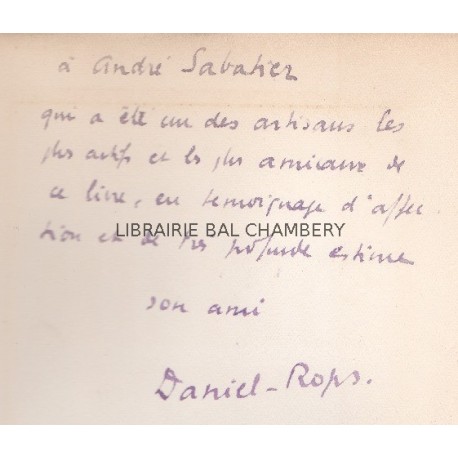 à André Sabatier
qui a été un des artisans les
plus actifs et les plus amicaux de
ce livre, en témoignage d'affec
LIBRAIRIE BAL CHAMBERY
tion et de très profonde estime
son ami
Daniel-Rops.